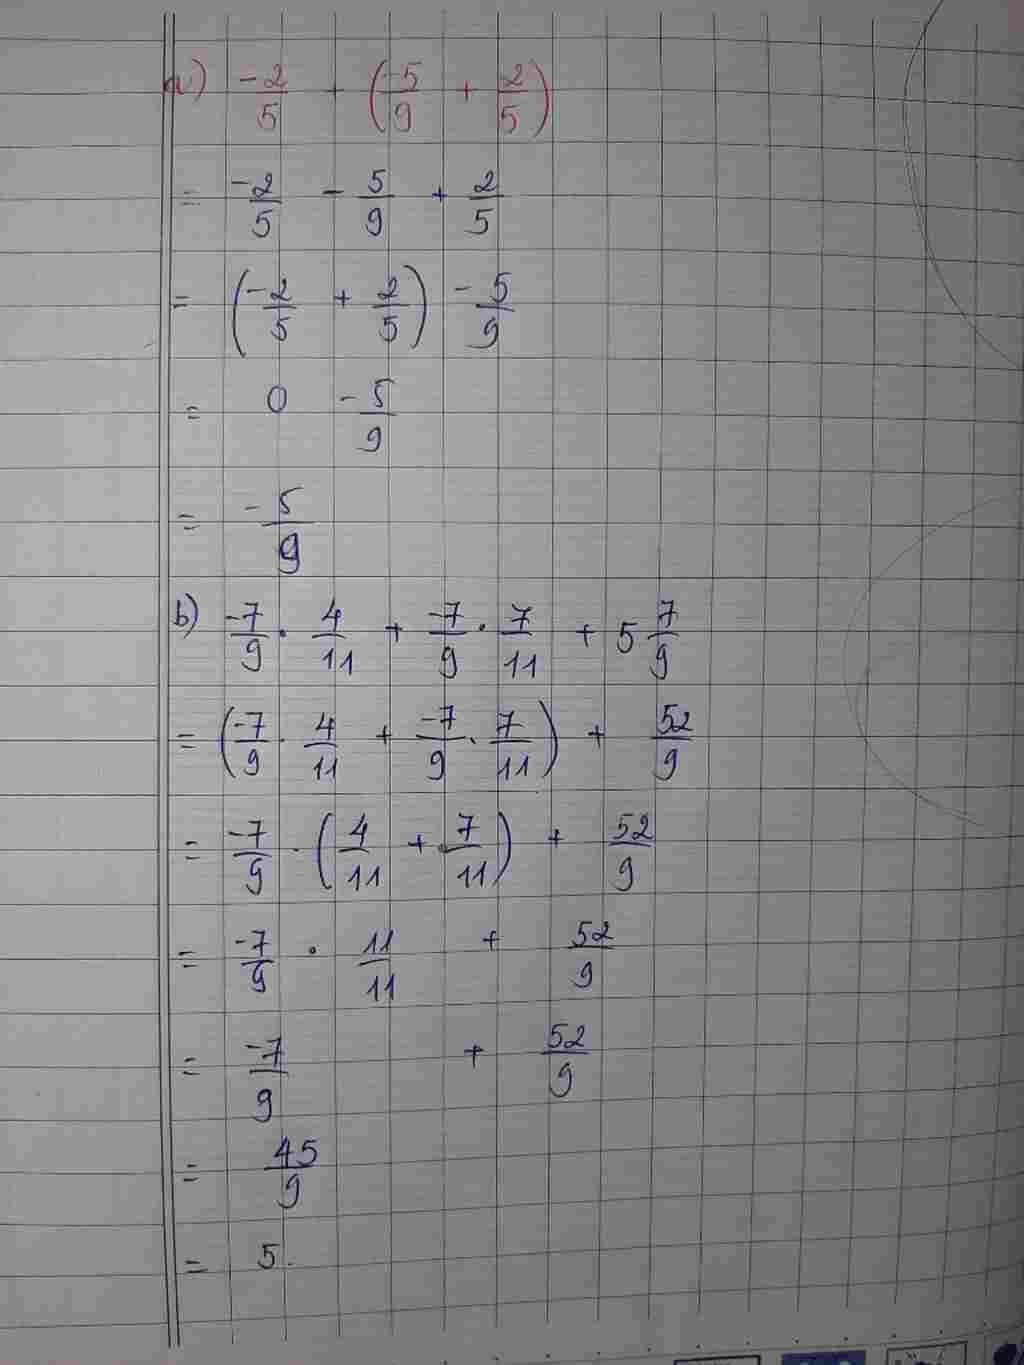 a) -2/5 + (-5/9 + 2/5)
= -2/5 - 5/9 + 2/5
= (-2/5 + 2/5) - 5/9
= 0 - 5/9
= -5/9
b) -7/9 . 4/11 + -7/9 . 7/11 + 5 7/9
= (-7/9 . 4/11 + -7/9 . 7/11) + 52/9
= -7/9 . (4/11 + 7/11) + 52/9
= -7/9 . 11/11 + 52/9
= -7/9 + 52/9
= 45/9
= 5.